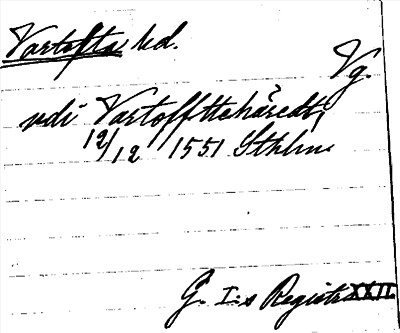 Vartofta hd.
Vg.
vdi Vartoffttehäredt,
12/12 1551 Sthlm
G. I:s Registr XXII